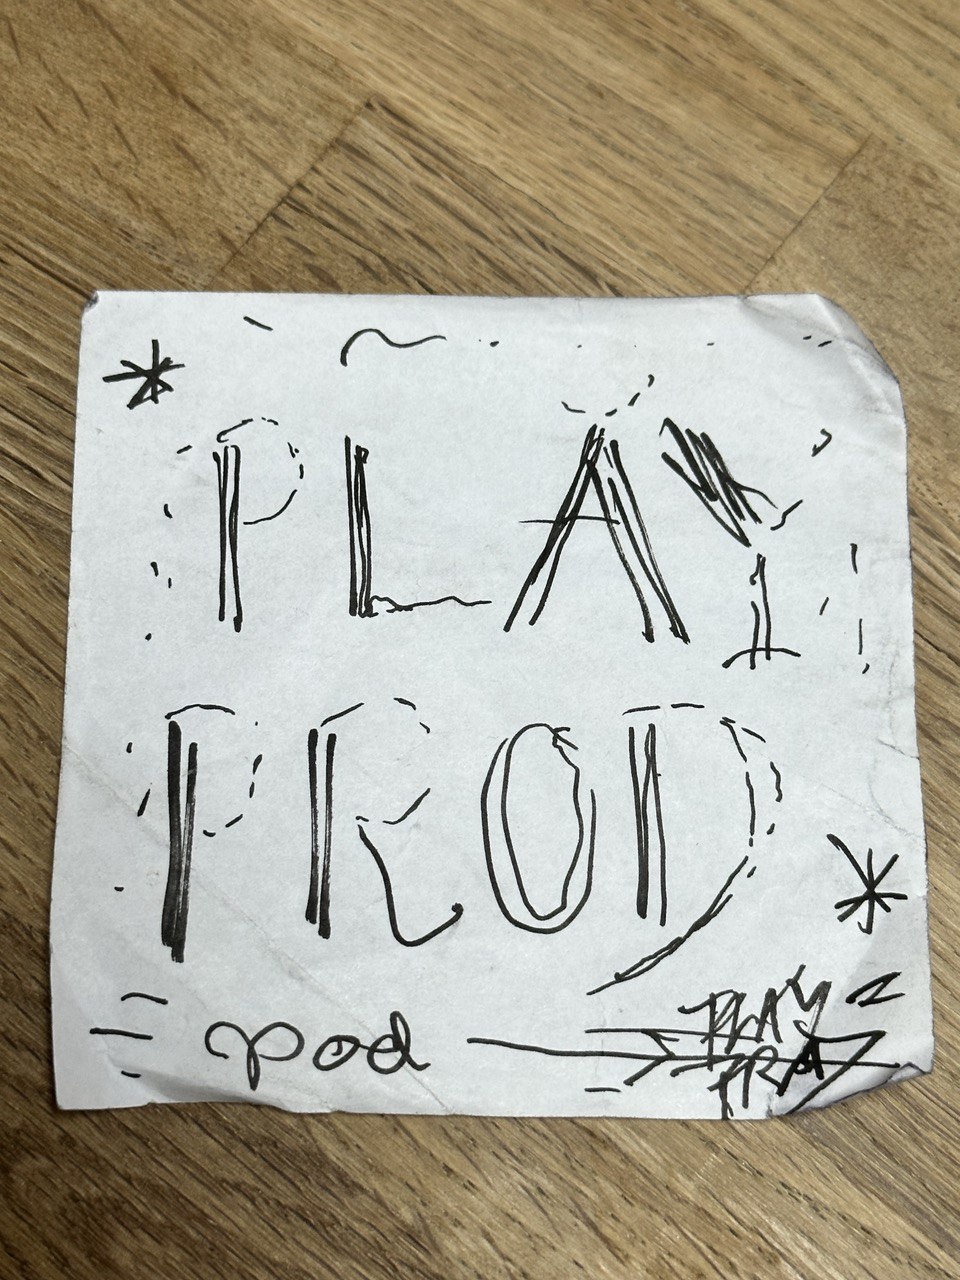 PLAY
PROD
pod
PLAY
PROD